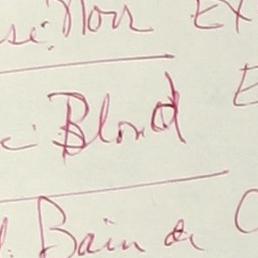 si: Noir Ex
c: Blond E
Bain de C